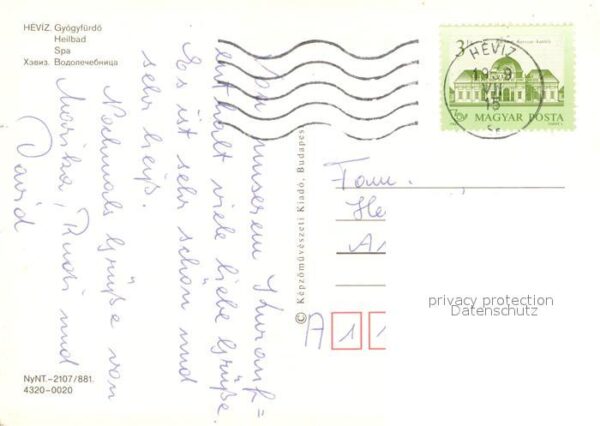 HÉVÍZ. Gyógyfürdő
Heilbad
Spa
Хэвиз. Водолечебница
Von unserem Kurauf=
enthalt viele liebe Grüße.
Es ist sehr schön und
sehr heiß.
Nochmals Grüße von
Marika, Rudi und
David
NyNT.–2107/881.
4320–0020
© Képzőművészeti Kiadó, Budapest
3 Ft
HÉVÍZ
MAGYAR POSTA
Fam.
He
A 1 1
privacy protection
Datenschutz